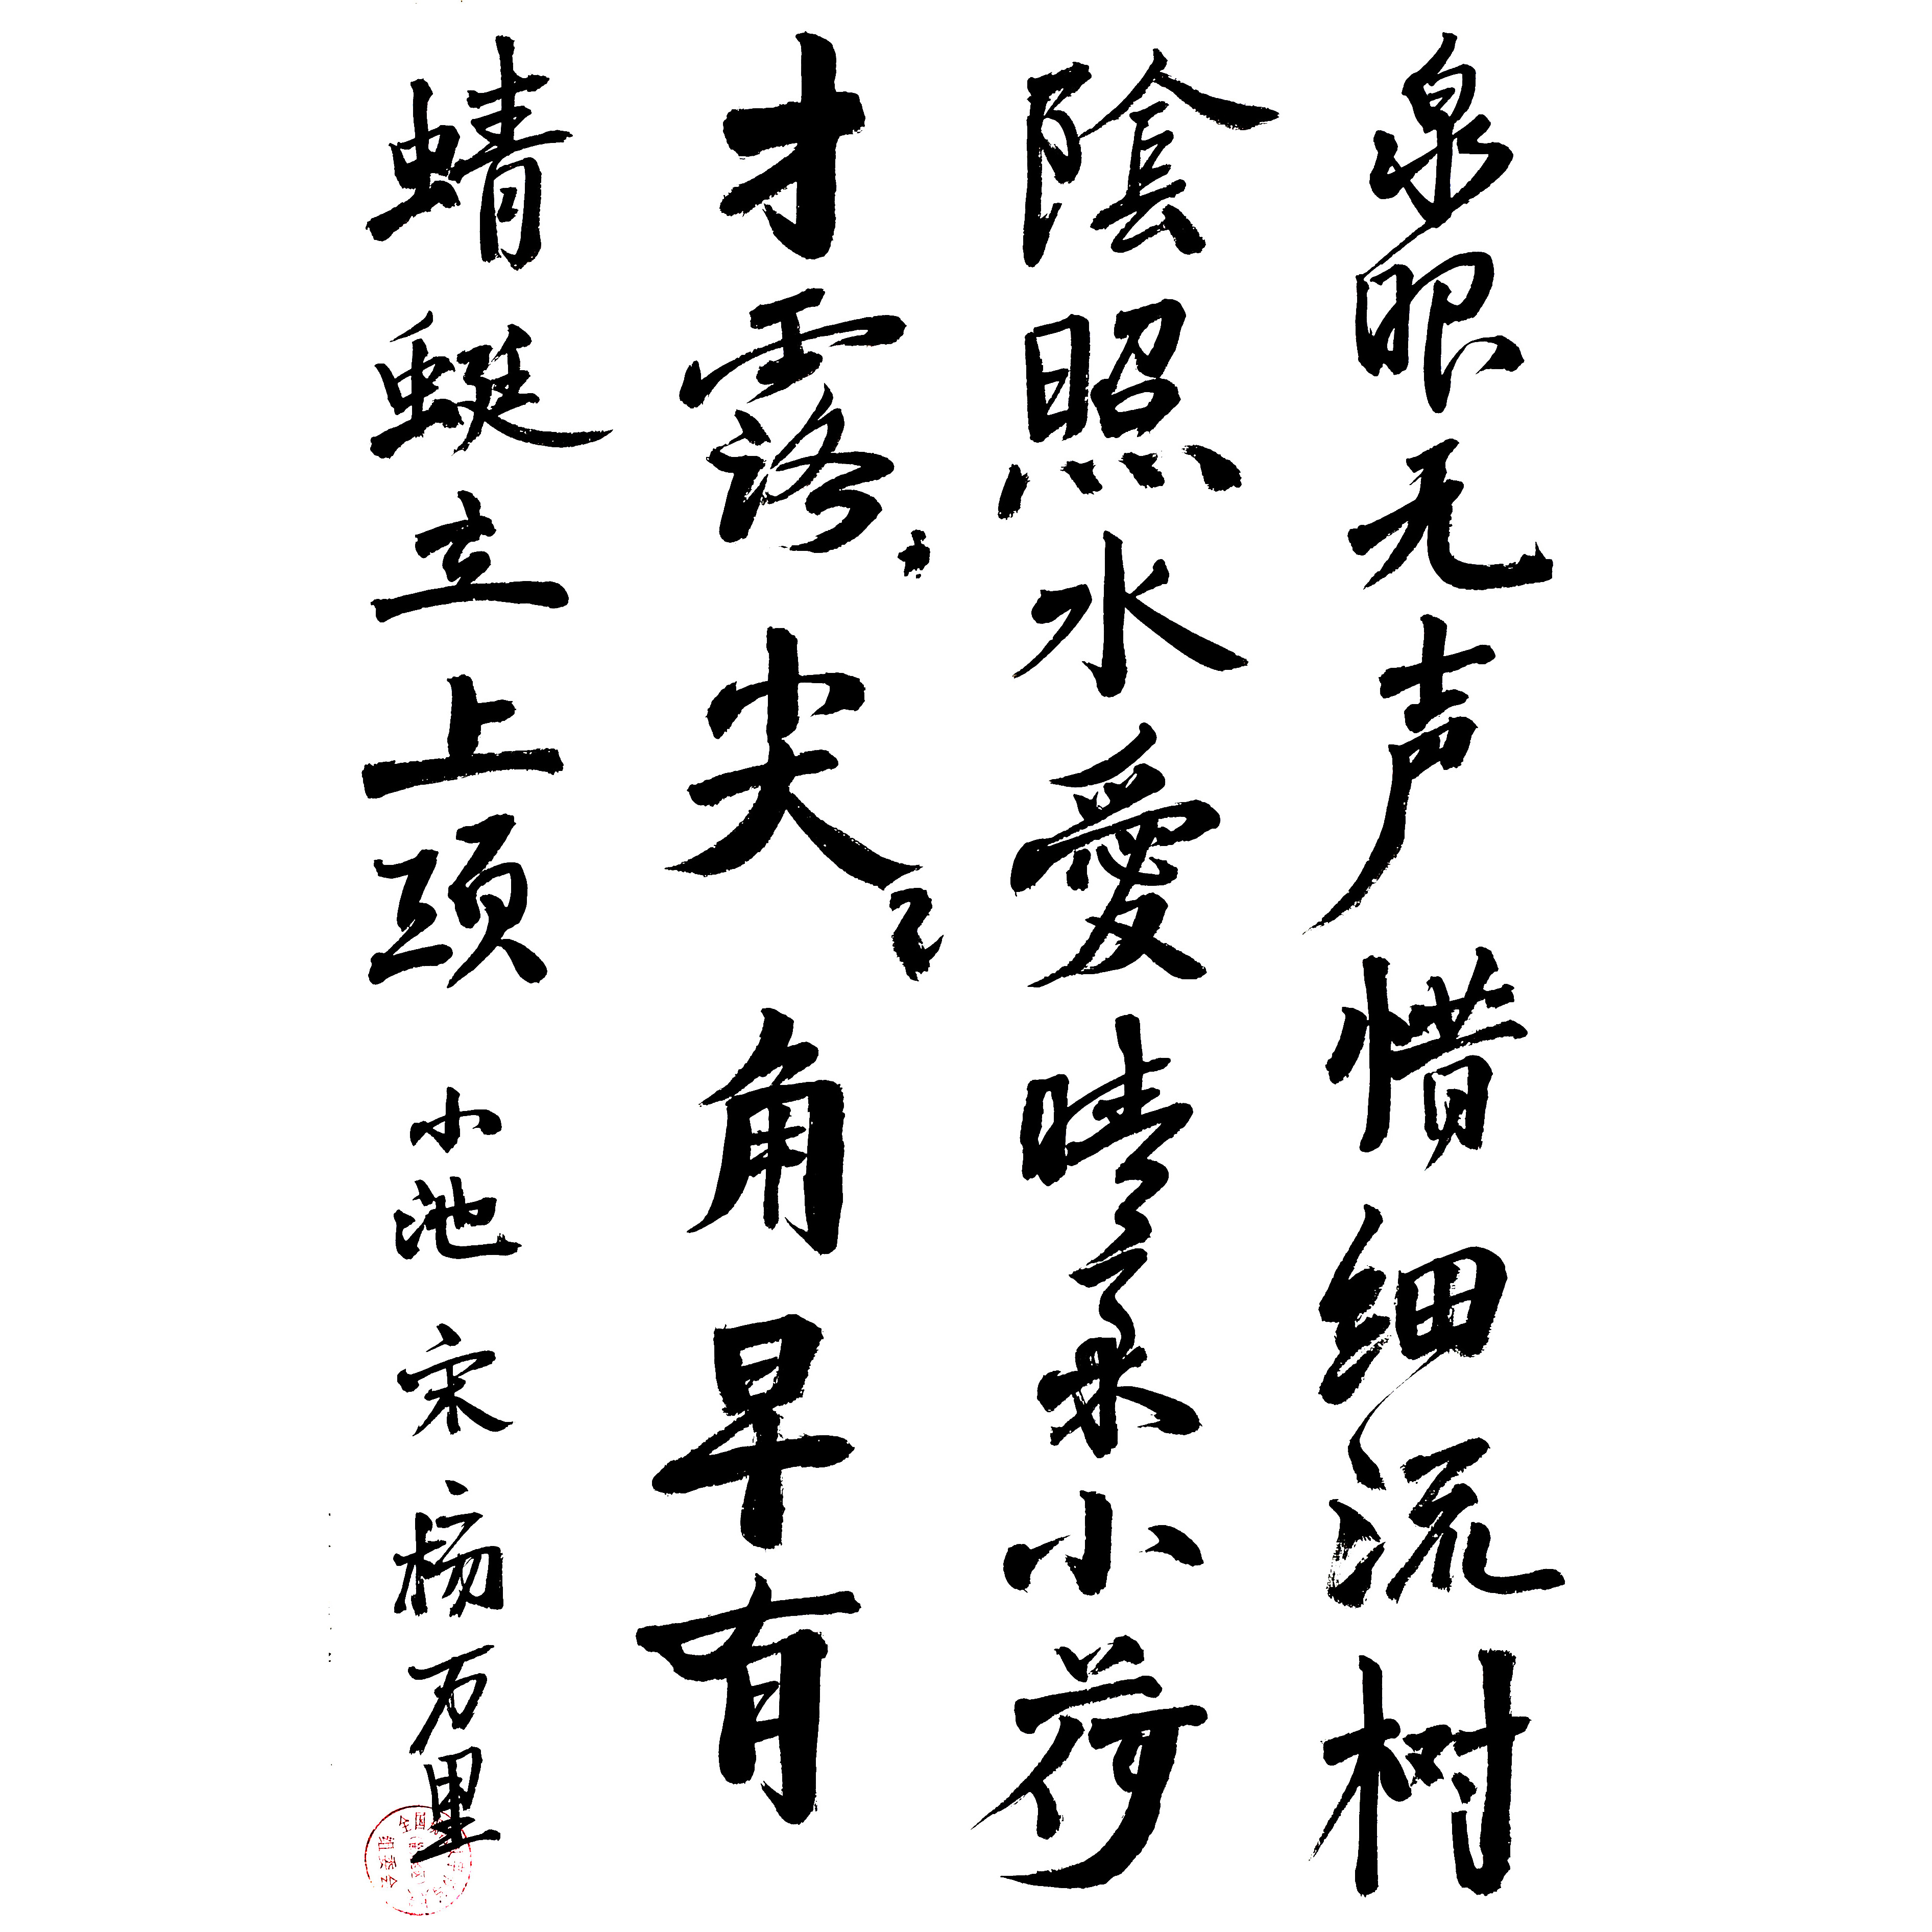 泉眼无声惜细流树
陰照水愛晴柔小荷
才露尖々角早有
蜻蜓立上頭 小池 宋 杨万里